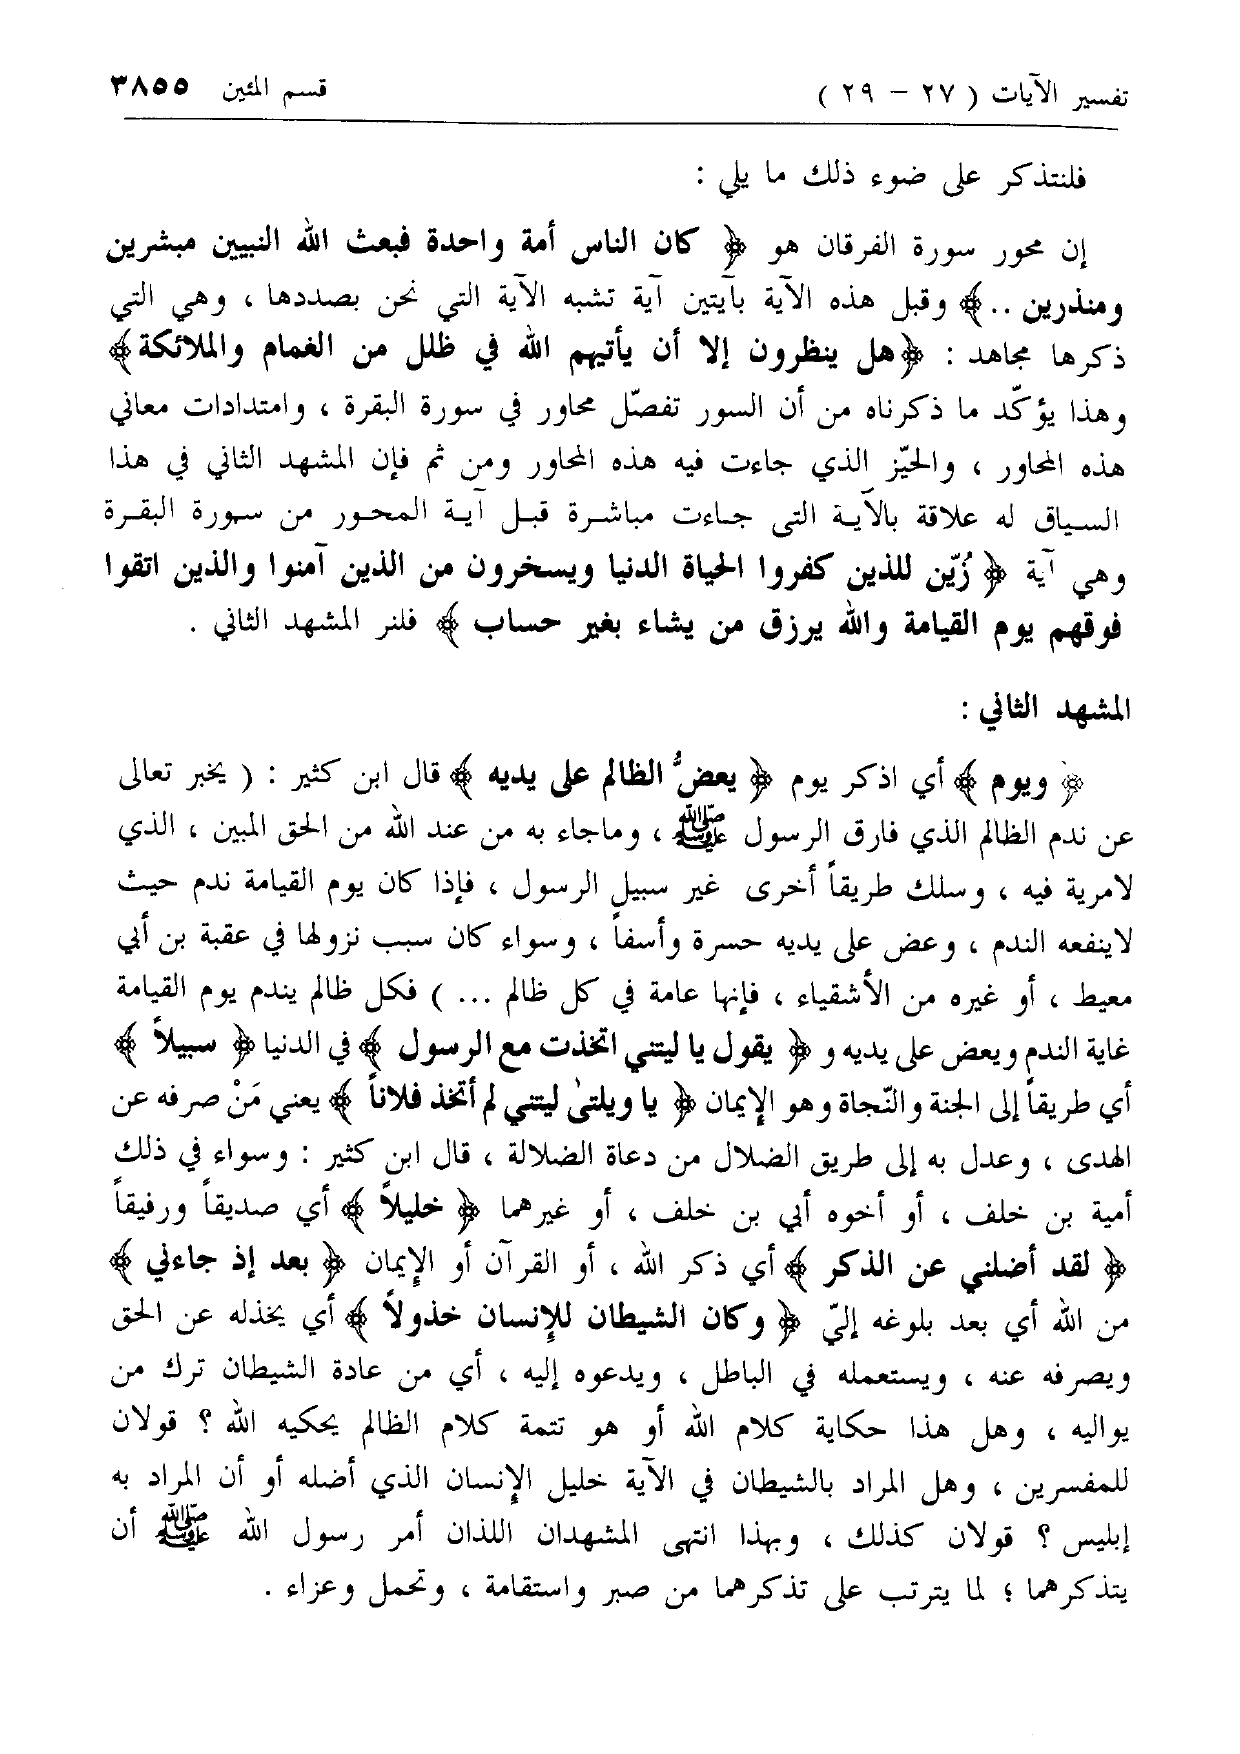 تفسير الآيات ( ٢٧ - ٢٩ )
قسم المئين ٣٨٥٥
فلنتذكر على ضوء ذلك ما يلي :
إن محور سورة الفرقان هو ﴿ كان الناس أمة واحدة فبعث الله النبيين مبشرين
ومنذرين .. ﴾ وقبل هذه الآية بآيتين آية تشبه الآية التي نحن بصددها ، وهي التي
ذكرها مجاهد : ﴿ هل ينظرون إلا أن يأتيهم الله في ظلل من الغمام والملائكة ﴾
وهذا يؤكّد ما ذكرناه من أن السور تفصّل محاور في سورة البقرة ، وامتدادات معاني
هذه المحاور ، والحيّز الذي جاءت فيه هذه المحاور ومن ثم فإن المشهد الثاني في هذا
السياق له علاقة بالآية التي جاءت مباشرة قبل آية المحور من سورة البقرة
وهي آية ﴿ زُيّن للذين كفروا الحياة الدنيا ويسخرون من الذين آمنوا والذين اتقوا
فوقهم يوم القيامة والله يرزق من يشاء بغير حساب ﴾ فلنر المشهد الثاني .
المشهد الثاني :
﴿ ويوم ﴾ أي اذكر يوم ﴿ يعضُّ الظالم على يديه ﴾ قال ابن كثير : ( يخبر تعالى
عن ندم الظالم الذي فارق الرسول ﷺ ، وماجاء به من عند الله من الحق المبين ، الذي
لامرية فيه ، وسلك طريقاً أخرى غير سبيل الرسول ، فإذا كان يوم القيامة ندم حيث
لاينفعه الندم ، وعض على يديه حسرة وأسفاً ، وسواء كان سبب نزولها في عقبة بن أبي
معيط ، أو غيره من الأشقياء ، فإنها عامة في كل ظالم ... ) فكل ظالم يندم يوم القيامة
غاية الندم ويعض على يديه و ﴿ يقول يا ليتني اتخذت مع الرسول ﴾ في الدنيا ﴿ سبيلاً ﴾
أي طريقاً إلى الجنة والنّجاة وهو الإيمان ﴿ يا ويلتىٰ ليتني لم أتخذ فلاناً ﴾ يعني مَنْ صرفه عن
الهدى ، وعدل به إلى طريق الضلال من دعاة الضلالة ، قال ابن كثير : وسواء في ذلك
أمية بن خلف ، أو أخوه أبي بن خلف ، أو غيرهما ﴿ خليلاً ﴾ أي صديقاً ورفيقاً
﴿ لقد أضلني عن الذكر ﴾ أي ذكر الله ، أو القرآن أو الإيمان ﴿ بعد إذ جاءني ﴾
من الله أي بعد بلوغه إليّ ﴿ وكان الشيطان للإنسان خذولاً ﴾ أي يخذله عن الحق
ويصرفه عنه ، ويستعمله في الباطل ، ويدعوه إليه ، أي من عادة الشيطان ترك من
يواليه ، وهل هذا حكاية كلام الله أو هو تتمة كلام الظالم يحكيه الله ؟ قولان
للمفسرين ، وهل المراد بالشيطان في الآية خليل الإنسان الذي أضله أو أن المراد به
إبليس ؟ قولان كذلك ، وبهذا انتهى المشهدان اللذان أمر رسول الله ﷺ أن
يتذكرهما ؛ لما يترتب على تذكرهما من صبر واستقامة ، وتحمل وعزاء .